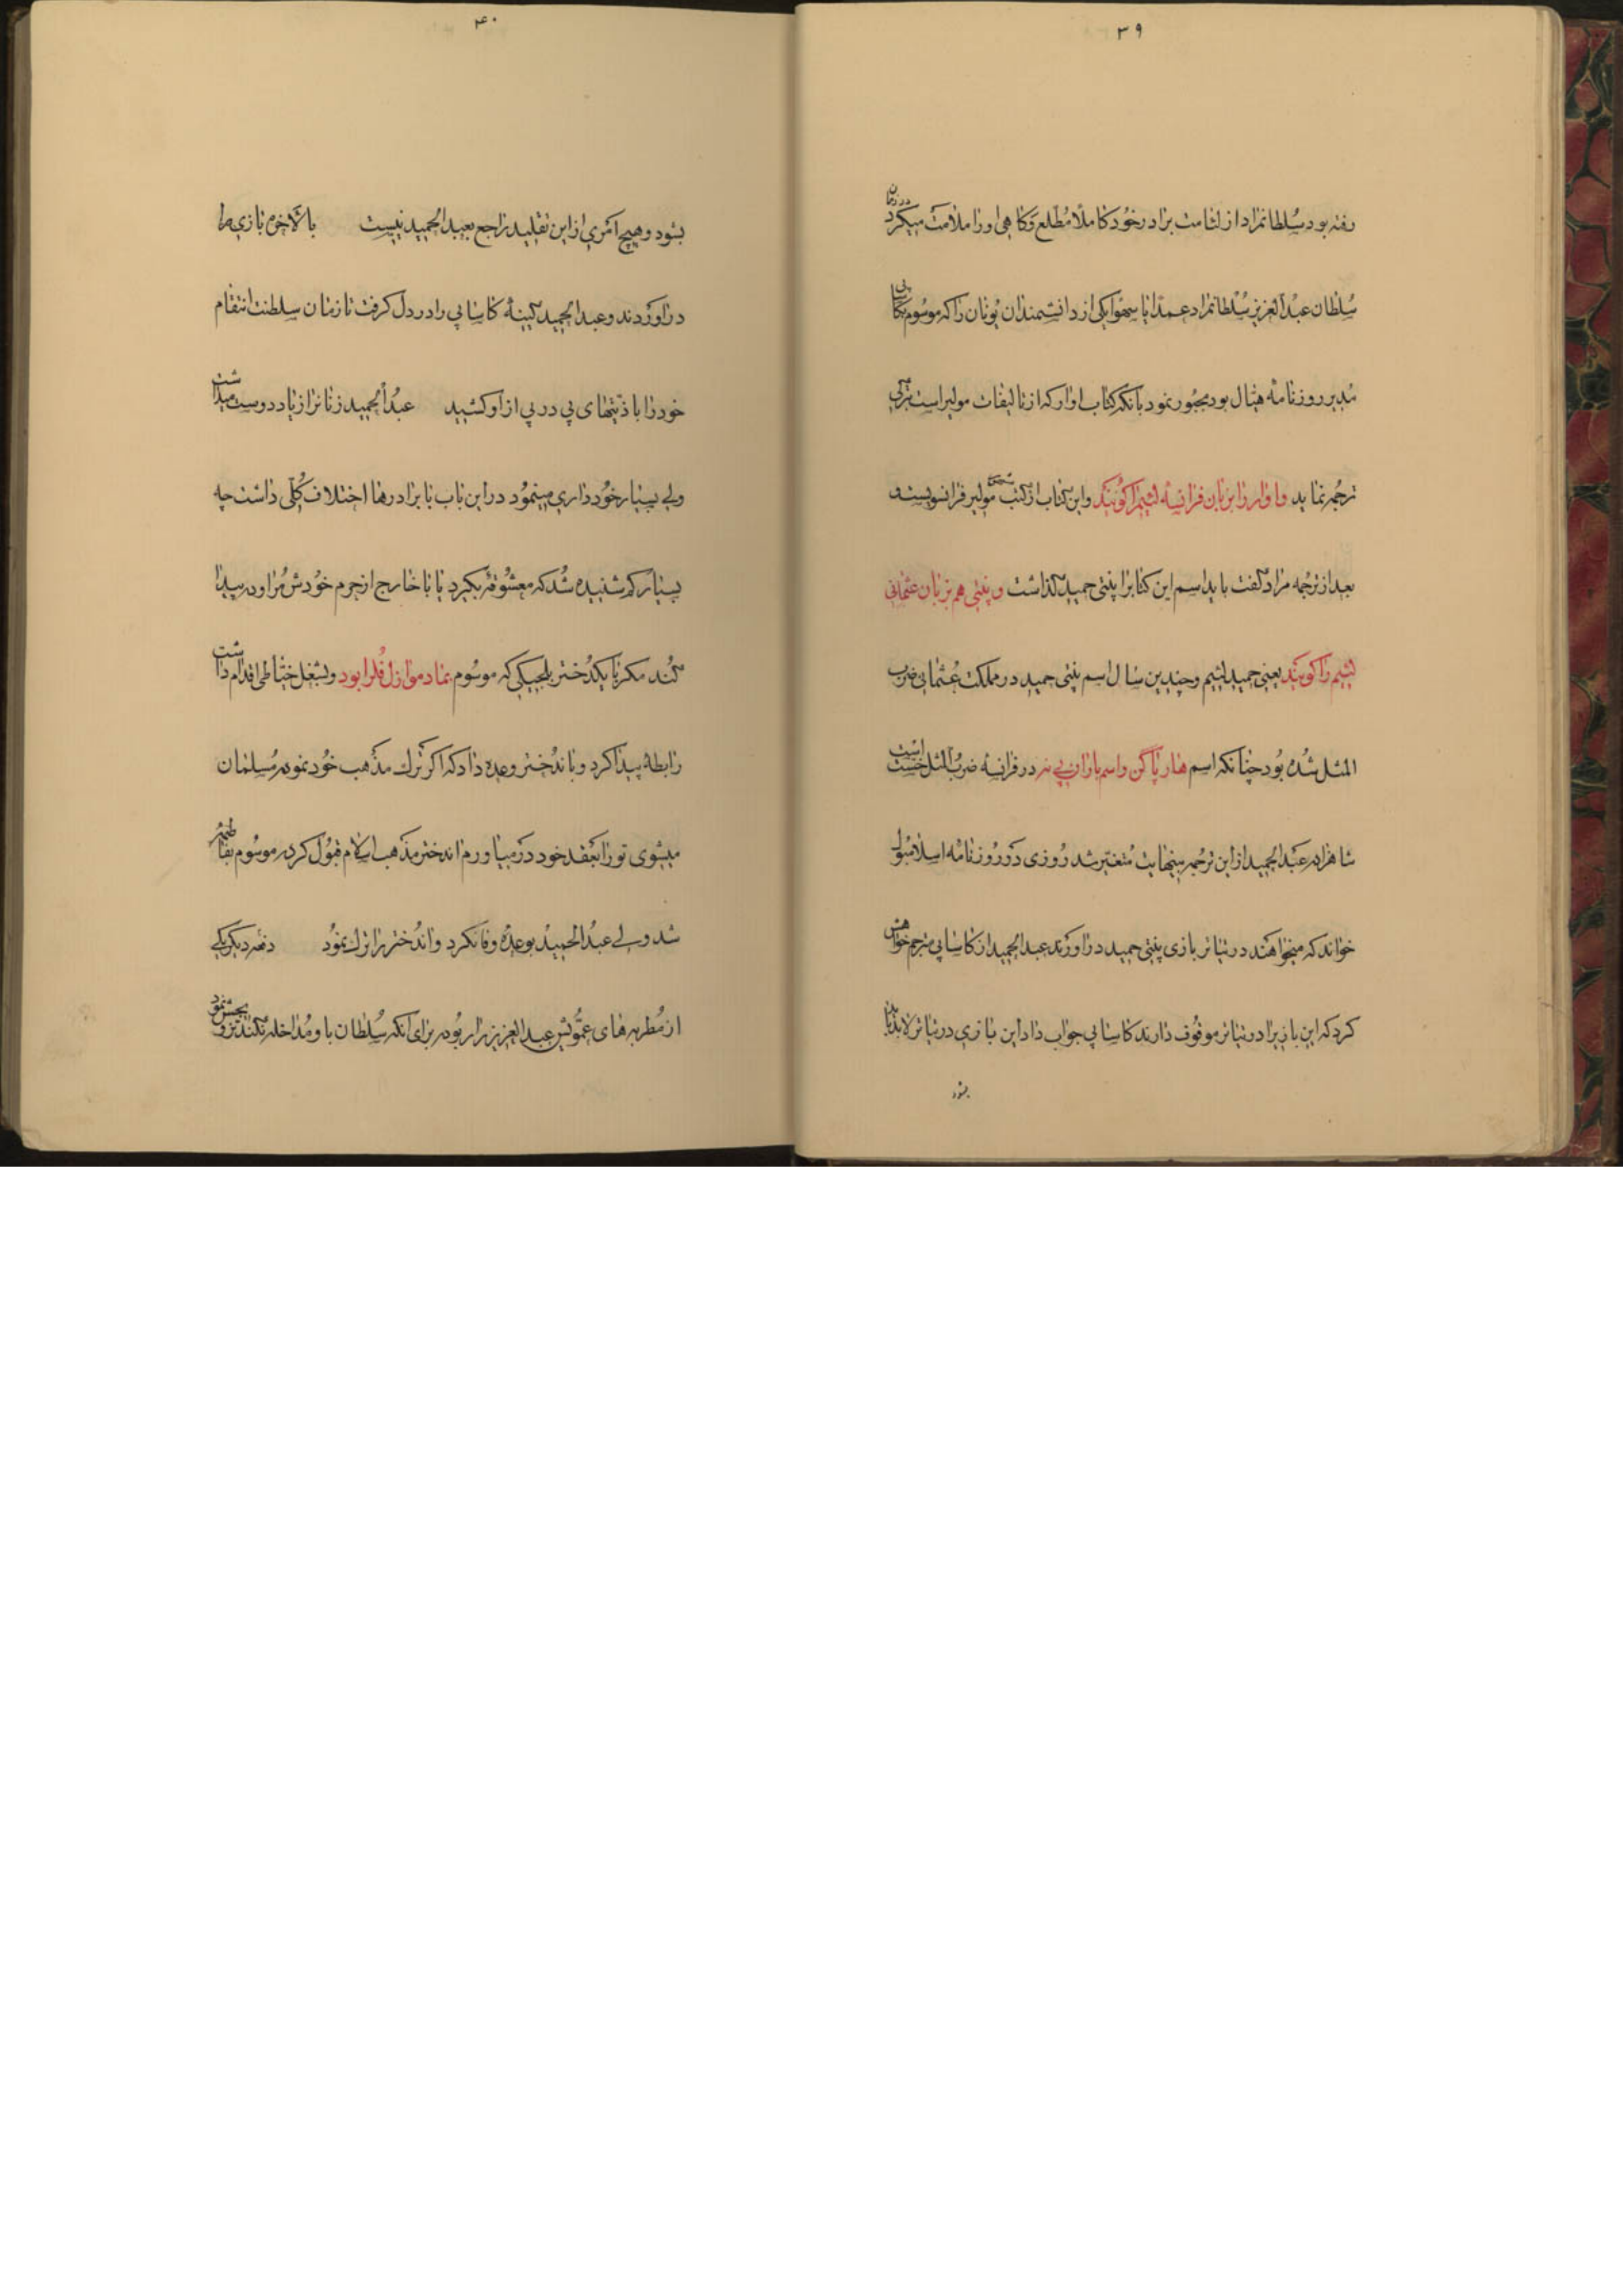 ۳۹
رفته بود سلطانمراد از لئامت برادر خود کاملا مطلع و گاهی او را ملامت میکرد در زمان
سلطان عبدالعزیز سلطانمراد عمداً یا سهوا یکی از دانشمندان یونان را که موسوم بکاساپی
مدیر روزنامه هیال بود مجبور نمود بآنکه کتاب اوار که از تالیفات مولیر است بترکی
ترجمه نماید و اوار را بزبان فرانسه لئیم را گویند و این کتاب از کتب مولیر فرانسویست
بعد از ترجمه مراد گفت باید اسم این کتابرا پنتی حمید گذاشت و پنتی هم بزبان عثمانی
لئیم را گویند یعنی حمید لئیم و چندین سال اسم پنتی حمید در مملکت عثمانی ضرب
المثل شده بود چنانکه اسم هارپاگن و اسم باران پی نه در فرانسه ضرب المثل خست است
شاهزاده عبدالحمید از این ترجمه بینهایت متغیر شد روزی در روزنامه اسلامبولی
خواند که میخواهند در تیاتر بازی پنتی حمید در آورند عبدالحمید از کاساپی مترجم خواهش
کرد که این بازیرا در تیاتر موقوف دارند کاساپی جواب داد این بازی در تیاتر لابد باید
بشود
۴۰
بشود و هیچ امری از این تقلید راجع بعبدالحمید نیست بالاخره بازی را
در آوردند و عبدالحمید کینهٔ کاساپی را در دل گرفت تا زمان سلطنت انتقام
خود را با ذیتهای پی در پی از او کشید عبدالحمید زنانرا زیاد دوست میداشت
ولی بسیار خودداری مینمود در این باب با برادرها اختلاف کلی داشت چه
بسیار کم شنیده شد که معشوقه بگیرد یا با خارج از حرم خودش مراوده پیدا
کند مگر با یکدختر بلجیکی که موسوم بمادموازل فلرا بود و بشغل خیاطی اقدام داشت
رابطهٔ پیدا کرد و باندختر وعده داد که اگر ترک مذهب خود نموده مسلمان
میشوی تو را بعقد خود در میاورم اندختر مذهب اسلام قبول کرده موسوم بفاطمه
شد ولی عبدالحمید بوعده وفا نکرد و اندختر را ترک نمود دفعه دیگر یکی
از مطربه های عمویش عبدالعزیز را ربوده برای آنکه سلطان باو مداخله نکند تزویجش نمود